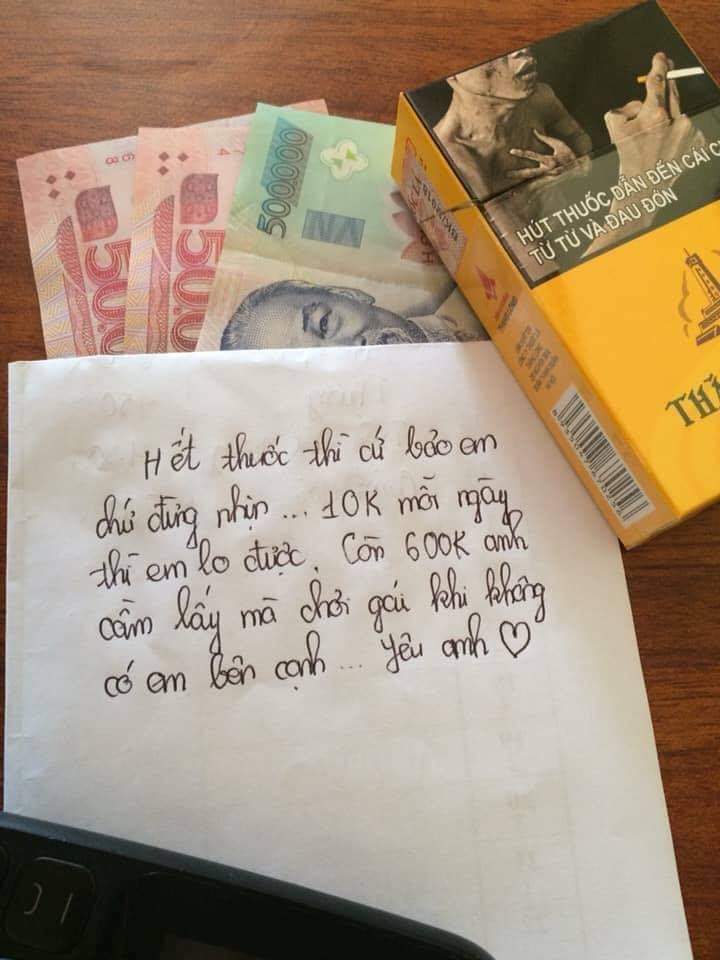 500000
50.0
50.0
HÚT THUỐC DẪN ĐẾN CÁI C
TỪ TỪ VÀ ĐAU ĐỚN
THĂ
Hết thuốc thì cứ bảo em
chứ đừng nhịn... 10K mỗi ngày
thì em lo được. Còn 600K anh
cầm lấy mà chơi gái khi không
có em bên cạnh... Yêu anh ♡